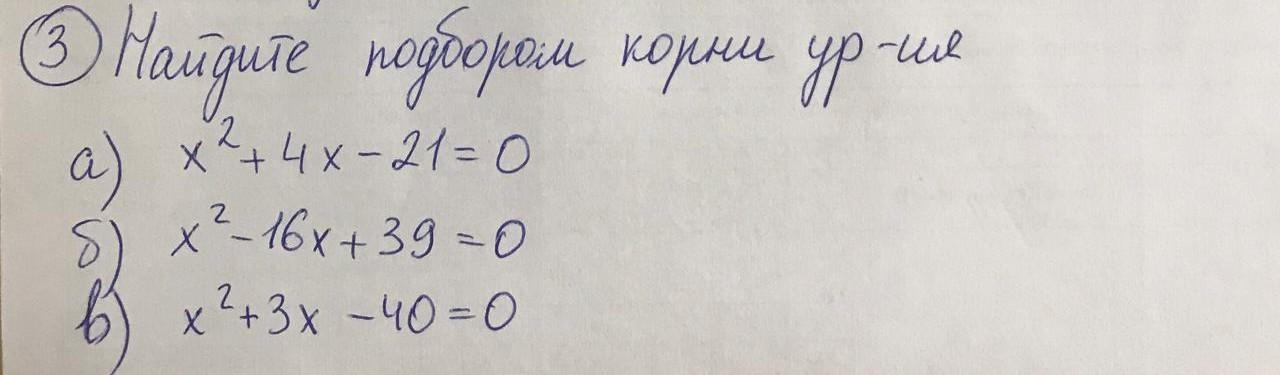 ③ Найдите подбором корни ур-ия
а) x² + 4x - 21 = 0
б) x² - 16x + 39 = 0
в) x² + 3x - 40 = 0